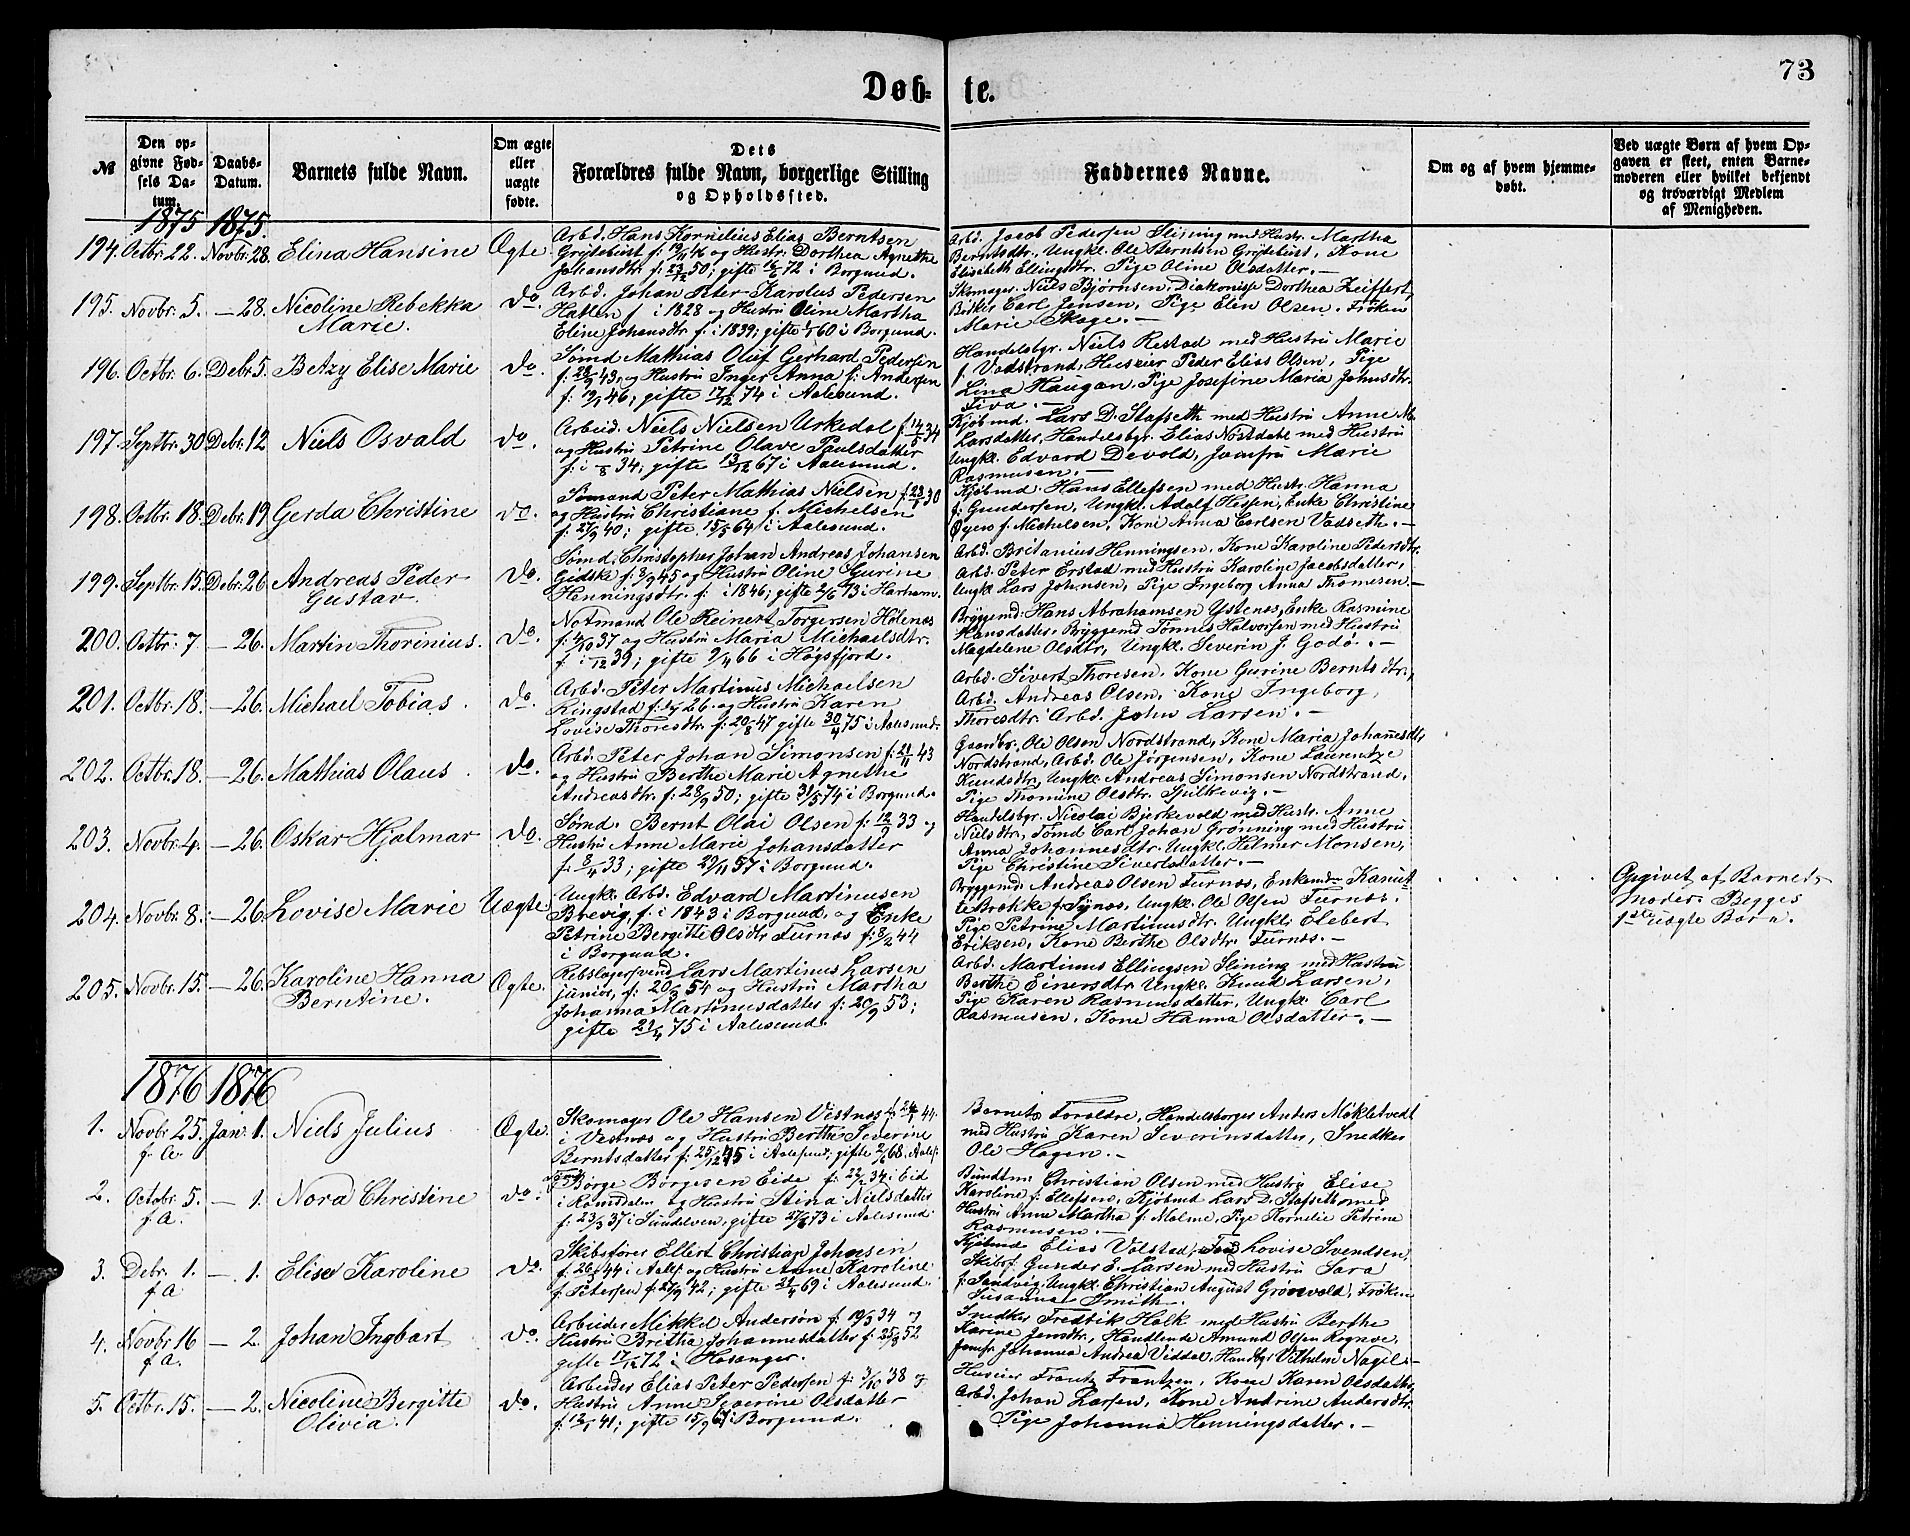 73
Døb- te.
№
Den opgivne Fødsels Datum.
Daabs-Datum.
Barnets fulde Navn.
Om ægte eller uægte fødte.
Dets Forældres fulde Navn, borgerlige Stilling og Opholdssted.
Faddernes Navne.
Om og af hvem hjemmedøbt.
Ved uægte Børn af hvem Opgaven er skeet, enten Barnemoderen eller hvilket bekjendt og troværdigt Medlem af Menigheden.
1875 1875.
194. Octbr. 22. Novbr. 28. Elina Hansine Ægte.
Arbd. Hans Kornelius Elias Berntsen
Grøjtebust f. 19/4 46 og Hustr. Dorthea Agnethe
Johansdtr. f: 23/2 50; gifte 16/6 72 i Borgund.
Arbd. Jacob Pedersen Slining med Hustr. Martha
Berntsdtr., Ungkl. Ole Berntsen Grøjtebust, Kone
Elisabeth Ellingsdtr. Pige Oline Olsdatter. —
195. Novbr. 5. — 28. Nicoline Rebekka
Marie. do.
Arbd. Johan Peter Karolus Pedersen
Hatlen f. i 1828 og Hustru Oline Martha
Eline Johansdtr. f: i 1839; gifte 60 i Borgund.
Skomager. Niels Bjørnsen, Diakonisse Dorthea Zeiffert,
Bødker Carl Jensen, Pige Elen Olsen. Frøken
Marie Skage. —
196. Octbr. 6. Debr. 5. Betzy Elise Marie do.
Sømd Mathias Oluf Gerhard Pedersen
f: 29/9 43, og Hustru Inger Anna f: Andersen
f: 19/1 46; gifte 17/12 74 i Aalesund.
Handelsbgr. Niels Restad med Hustru Marie
f. Vadstrand, Huseier Peder Elias Olsen, Pige
Lina Haugan. Pige Josefine Maria Johnsdtr.
Fiva. —
197. Septbr. 30 Debr. 12 Niels Osvald do.
Arbeid. Niels Nielsen Urkedal f. 14/5 34
og Hustru Petrine Olave Paulsdatter
f: i /8 34; gifte 13/12 67 i Aalesund.
Kjøbmd. Lars D. Stafseth med Hustru Anne M.
Larsdatter, Handelsbgr. Elias Nøstdahl med Hustru
Ungkl. Edvard Devold, Jomfru Marie
Rasmusen. —
198. Octbr. 18. Debr. 19 Gerda Christine do.
Sømand Peter Mathias Nielsen f. 23/1 30
og Hustru Christiane f: Michelsen
f: 27/9 40; gifte 15/5 64 i Aalesund.
Kjøbmd. Hans Ellefsen med Hustr. Hanna
f: Gundersen, Ungkl. Adolf Hessen, Enke Christine
Øyen f. Michelsen, Kone Anna Carlsen Vadseth. —
199. Septbr. 15. Debr. 26 Andreas Peder
Gustav. do.
Sømd. Christopher Johan Andreas Johansen
Gidske f: 8/9 45 og Hustru Oline Gurine
Henningsdtr. f: i 1846; gifte 2/6 73 i Harham.
Arbd. Britanius Henningsen. Kone Karoline Pedersdtr.
Arbd. Peter Erstad med Hustru Karoline Jacobsdatter,
Ungk Lars Johnsen, Pige Ingeborg Anna Thomesen. —
200. Octbr. 7 — 26. Martin Thorinius. do.
Notmand Ole Reinert Torgersen Hølenæs
f: 4/10 37 og Hustru Maria Michaelsdtr.
f. i /12 39; gifte 9/4 66 i Høgsfjord.
Bryggemd: Hans Abrahamsen Ystenes, Enke Rasmine
Hansdatter, Bryggemd Tønnes Halvorsen med Hustru
Magdelene Olsdtr, Ungkl. Severin J. Godø. —
201. Octbr. 18. — 26. Michael Tobias. do
Arbd. Peter Martinus Michaelsen
Ringstad f: 26. og Hustru Karen
Lovise Thoresdtr. f: 20/8 47 gifte 30/4 75 i Aalesund.
Arbd. Sivert Thoresen. Kone Gurine Berntsdtr,
Arbd. Andreas Olsen. Kone Ingeborg
Thoresdtr. Arbd. John Larsen. —
202. Octbr. 18. — 26. Mathias Olaus. do.
Arbd. Peter Johan Simonsen f: 21/11 43
og Hustru Berthe Marie Agnethe
Andreasdtr. f: 28/9 50; gifte 31/5 74 i Borgund.
Gaardbr. Ole Olsen Nordstrand, Kone Maria Johannesdtr
Nordstrand, Arbd. Ole Jørgensen, Kone Laurentze
Knudsdtr, Ungkl. Andreas Simonsen Nordstrand.
Pige Thomine Olsdtr. Spilkevig. —
203. Novbr. 4. — 26. Oskar Hjalmar do.
Sømd. Bernt Olai Olsen f: 12/9 33 og
Hustru Anne Marie Johansdatter
f: 8/4 33; gifte 29/11 57 i Borgund.
Handelsbgr. Nicolai Bjerkevold med Hustr. Anne
Nielsdtr, Tømd Carl Johan Grønning med Hustru
Anna Johannesdtr. Ungkl. Helmer Monsen,
Pige Christine Sivertsdatter. —
204. Novbr. 8. — 26. Lovise Marie Uægte.
Ungkl. Arbd. Edvard Martinusen
Brevig, f: i 1843 i Borgund, og Enke
Petrine Bergitte Olsdtr Furnæs f: 8/2 44
i Borgund.
Bryggemd: Andreas Olsen Furnæs, Enkemdr Kanut-
te Brække f. Synæs, Ungkl. Ole Olsen Furnæs.
Pige Petrine Martinusdtr. Ungkl. Elebert
Eriksen, Kone Berthe Olsdtr. Furnæs. —
Opgivet af Barnets
Moder. Begges
1ste uægte Barn.
205. Novbr. 15. — 26. Karoline Hanna
Berntine. Ægte.
Rebslagersvend Lars Martinus Larsen
junior, f: 20/3 54 og Hustru Martha
Johanna Martinusdatter f: 20/9 53;
gifte 21/4 75 i Aalesund.
Arbd. Martinus Ellingsen Slining med Hustru
Berthe Einersdtr. Ungkl. Knud Larsen,
Pige Karen Rasmusdatter, Ungkl. Carl
Rasmusen. Kone Hanna Olsdatter. —
1876 1876
1. Novbr 25. f. A. Jan. 1. Niels Julius Ægte.
Skomager Ole Hansen Vestnæs f. 24/1 44.
i Vestnæs og Hustru Berthe Severine
Berntsdatter f: 25/12 45 i Aalesund; gifte 2/6 68. Aales.
Barnets Forældre, Handelsborger Anders Mokletvedt
med Hustru Karen Severinsdatter, Snedker
Ole Hagen. —
2. Octobr. 5. f. A. — 1. Nora Christine do.
Børge Børgesen Eide f: 22/2 34 i Eid
i Romsdalen og Hustru Stina Nielsdatter
f: 23/3 37 i Sundelven, gifte 27/ 73 i Aalesund.
Bundtm: Christian Olsen med Hustru Elise
Karoline f: Ellefsen, Kjøbmd Lars D. Stafseth med
Hustru Anne Martha f: Malme, Pige Kornelie Petrine
Rasmusen. —
3. Debr. 1. f. A — 1. Elise Karoline do.
Skibsfører Ellert Christian Johnsen
f. 26/5 44 i Aals. og Hustru Anne Karoline
f. Petersen f. 27/9 42; gifte 21/4 69 i Aalesund.
Kjøbmd Elias Volstad, Lovise Svendsen,
Skibsf. Guneder E. Larsen med Hustru Sara
f. Sandvig. Ungkl. Christian August Grønvold, Frøken
Susanna Smith. —
4. Novbr 16 f. A. — 2. Johan Ingbart do.
Arbeider Mikkel Andersøn f. 19/3 34 og
Hustru Britha Johannesdatter f: 25/3 52
gifte 17/12 72 i Hosanger.
Snedker Fredrik Holk med Hustru Berthe
Karine Jensdtr., Handlende Amund Olsen Rognøe.
Jomfr. Johanna Andrea Viddal, Handbgr Vilhelm Nagel. —
5. Octbr. 15. — 2. Nicoline Bergitte
Olivia. do.
Arbeider Elias Peter Pedersen f. 3/10 38 og
Hustru Anne Severine Olsdatter
f: 13/1 41; gifte 15/9 67 i Borgund.
Huseier Frantz Frantzen, Kone Karen Olsdatter
Arbd. Johan Larsen, Kone Andrine Andersdtr.
Pige Johanna Henningsdatter. —